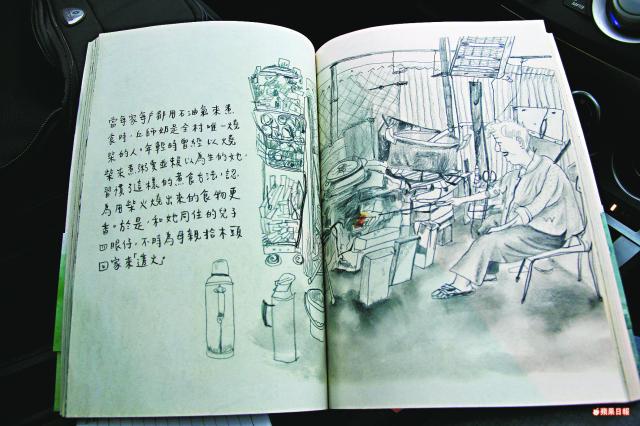 當每家每户都用石油氣來煮
食時，丘師奶是全村唯一燒
柴的人。年輕時曾經以燒
柴來煮粥賣並賴以為生的她，
習慣了這樣的煮食方法，認
為用柴火燒出來的食物更
香。於是，和她同住的兒子
四眼仔，不時為母親拾木頭
回家來「遺火」。
蘋果日報